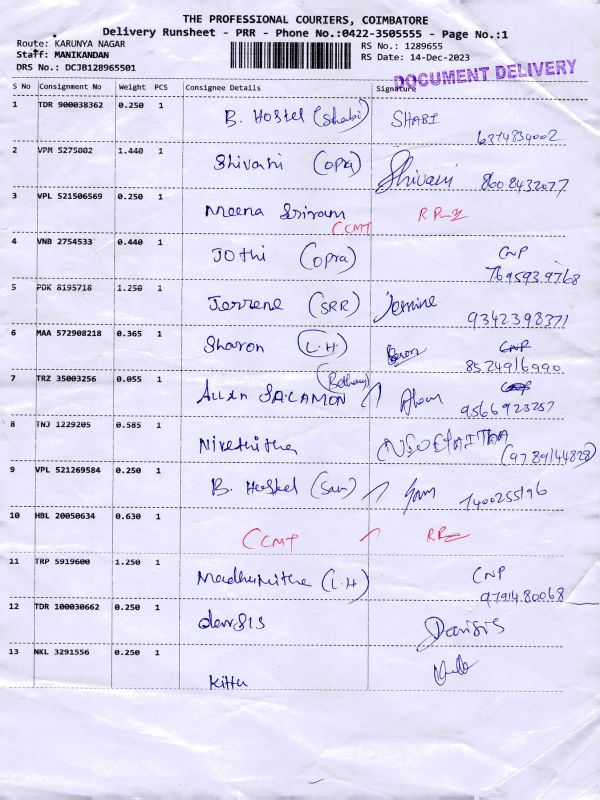 THE PROFESSIONAL COURIERS, COIMBATORE
Delivery Runsheet - PRR - Phone No.:0422-3505555 - Page No.:1
Route: KARUNYA NAGAR RS No.: 1289655
Staff: MANIKANDAN RS Date: 14-Dec-2023
DRS No.: DCJB128965501
DOCUMENT DELIVERY
S No Consignment No Weight PCS Consignee Details Signature
1 TDR 900038362 0.250 1
B. Hostel (Shabi) SHABI
6374834002
2 VPM 5275002 1.440 1
Shivani (opra) Shivani 8608432077
3 VPL 521506569 0.250 1
Meena Sriram
CCMT
4 VNB 2754533 0.440 1 CNP
Jothi (opra) 7695939768
5 PDK 8195718 1.250 1
Jerrene (SRR) Jermine
9342398371
6 MAA 572908218 0.365 1
Sharon (L.H) CNP
8524916990
7 TRZ 35003256 0.055 1 (Bethany)
ALLAN SALAMON
9566923257
8 TNJ 1229205 0.585 1
Nivethitha (9789144828)
9 VPL 521269584 0.250 1
B. Hostel (Sam) Sam 7400255196
10 HBL 20050634 0.630 1
CCMT
11 TRP 5919600 1.250 1 CNP
Madhumitha (L.H) 9791480068
12 TDR 100030662 0.250 1
13 NKL 3291556 0.250 1
Kittu